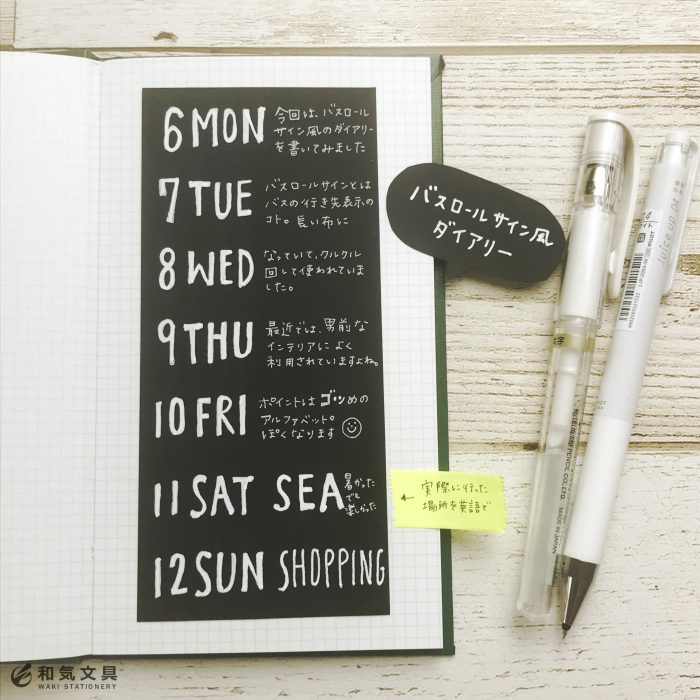 6 MON
今回は、バスロール
サイン風のダイアリー
を書いてみました
7 TUE
バスロールサインとは
バスの行き先表示の
コト。長い布に
8 WED
なっていて、クルクル
回して使われていま
した。
9 THU
最近では、男前な
インテリアによく
利用されていますよね。
10 FRI
ポイントはゴツめの
アルファベット。
ぽくなります
11 SAT SEA
暑かった
でも
楽しかった
12 SUN SHOPPING
バスロールサイン風
ダイアリー
← 実際に行った
場所を英語で
juice up 04
PILOT
MADE IN JAPAN
和気文具
WAKI STATIONERY